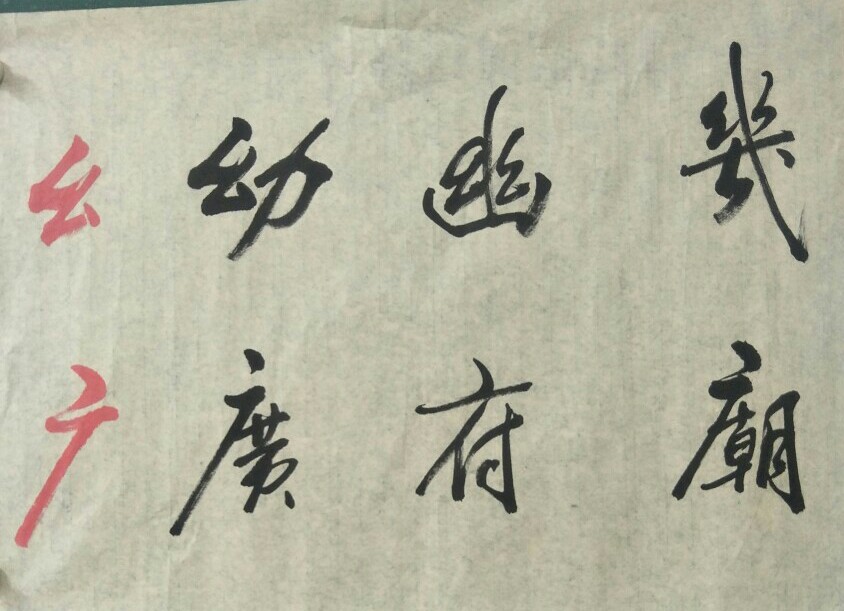 幺 幼 幽 幾
广 廣 府 廟